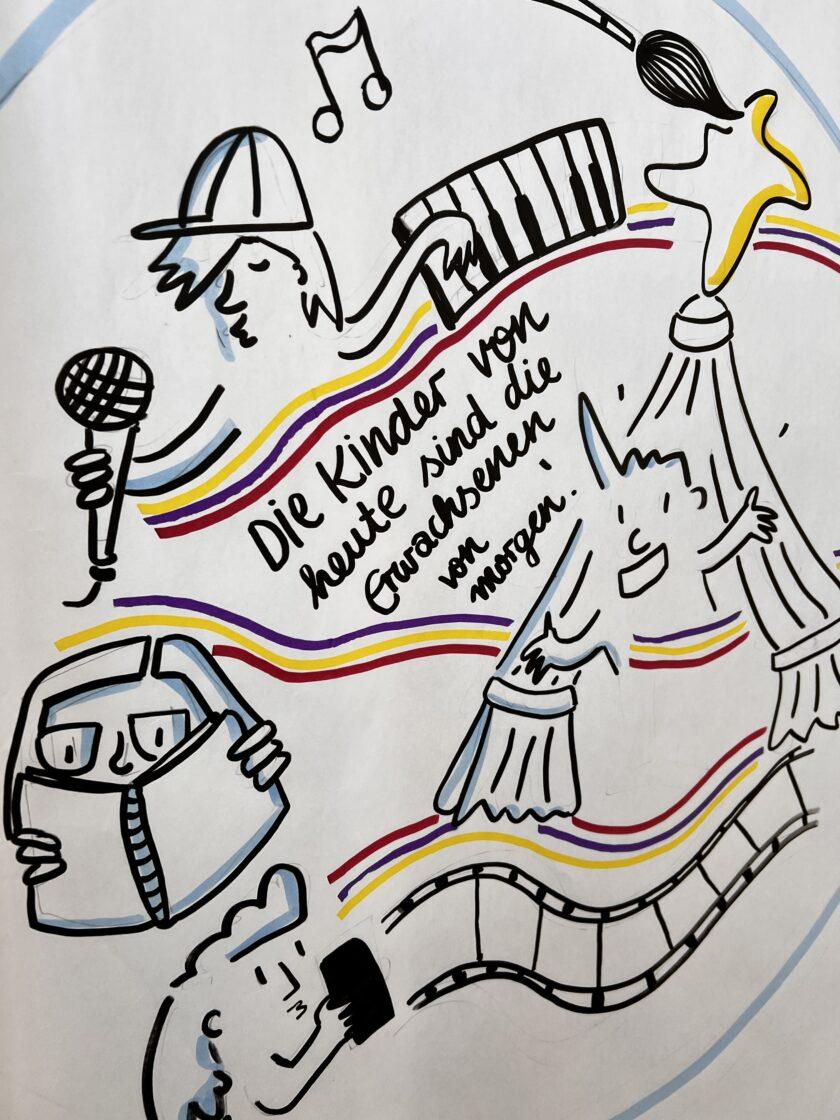 Die Kinder von
heute sind die
Erwachsenen
von
morgen!